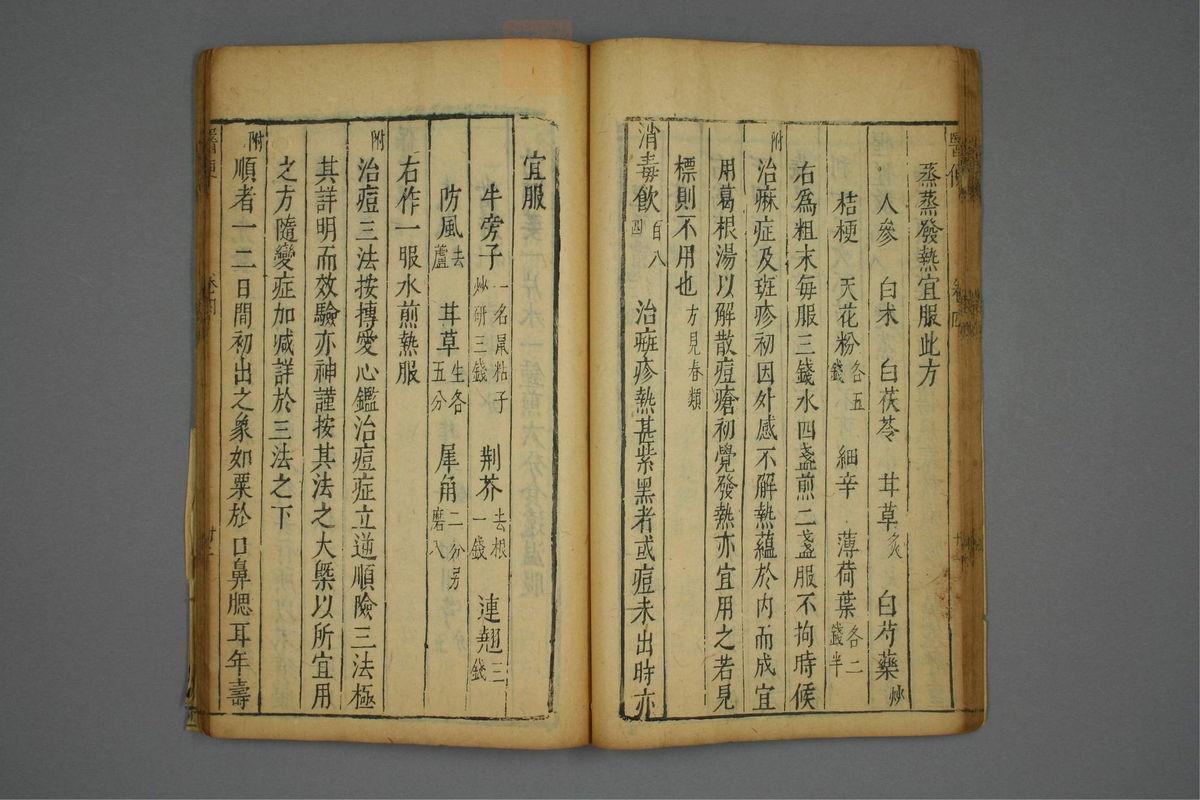 蒸蒸發熱宜服此方
人參 白朮 白茯苓 甘草炙 白芍藥炒
桔梗 天花粉各五錢 細辛 薄荷葉各二錢半
右為粗末每服三錢水四盞煎二盞服不拘時候
附治麻症及斑疹初因外感不解熱蘊於内而成宜
用葛根湯以解散痘瘡初覺發熱亦宜用之若見
標則不用也方見春類
消毒飲百八四 治痘疹熱甚紫黑者或痘未出時亦
宜服
牛旁子一名鼠粘子炒研三錢 荆芥去根一錢 連翹三錢
防風去蘆 甘草生各五分 犀角二分另磨入
右作一服水煎熱服
附治痘三法按摶愛心鑑治痘症立逆順險三法極
其詳明而效驗亦神謹按其法之大槩以所宜用
之方隨變症加減詳於三法之下
附順者一二日間初出之象如粟於口鼻腮耳年壽